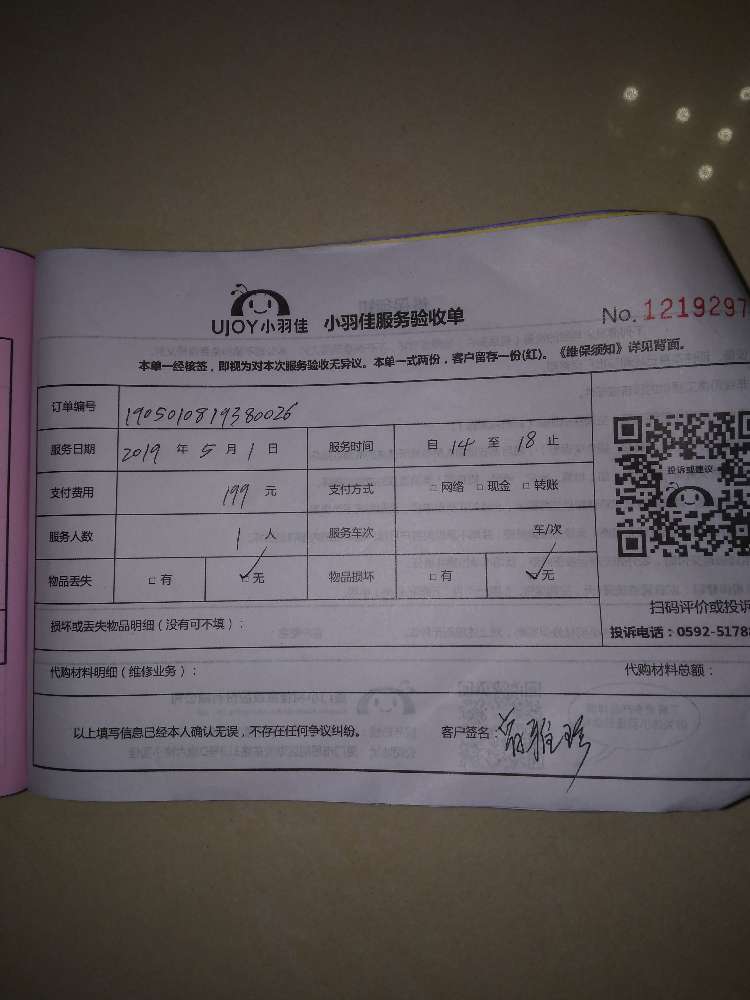 UJOY小羽佳 小羽佳服务验收单 No. 1219297
本单一经核签，即视为对本次服务验收无异议。本单一式两份，客户留存一份(红)。《维保须知》详见背面。
订单编号 1905010819380026
服务日期 2019 年 5 月 1 日 服务时间 自 14 至 18 止
支付费用 199 元 支付方式 □网络 □现金 □转账
服务人数 1 人 服务车次 车/次
物品丢失 □有 ☑无 物品损坏 □有 ☑无
投诉或建议
扫码评价或投诉
损坏或丢失物品明细（没有可不填）：
投诉电话：0592-5178
代购材料明细（维修业务）： 代购材料总额：
以上填写信息已经本人确认无误，不存在任何争议纠纷。 客户签名：